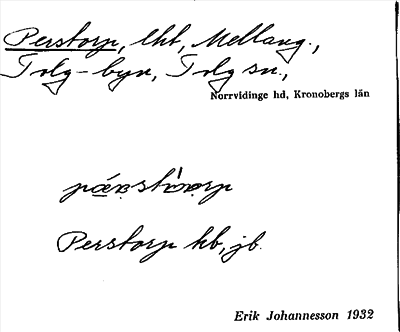 Perstorp, lht, Mellang.,
Tolg-byn, Tolg sn.,
Norrvidinge hd, Kronobergs län
Perstorp hb, jb.
Erik Johannesson 1932